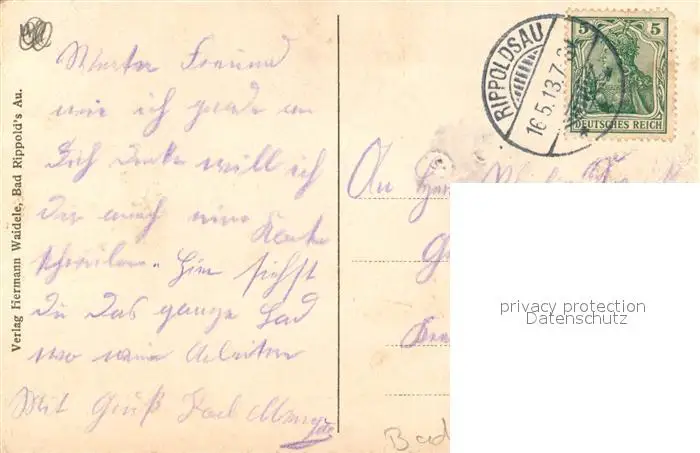 Werter Freund
wie ich gerade an
Dich denke will ich
Dir auch eine Karte
schreiben. Hier siehst
du das ganze Bad
wo wir arbeiten
Mit Gruß Karl
Verlag Hermann Waidele, Bad Rippold's Au.
RIPPOLDSAU
16.5.13.7-8
5 5
DEUTSCHES REICH
An
privacy protection
Datenschutz
Bad